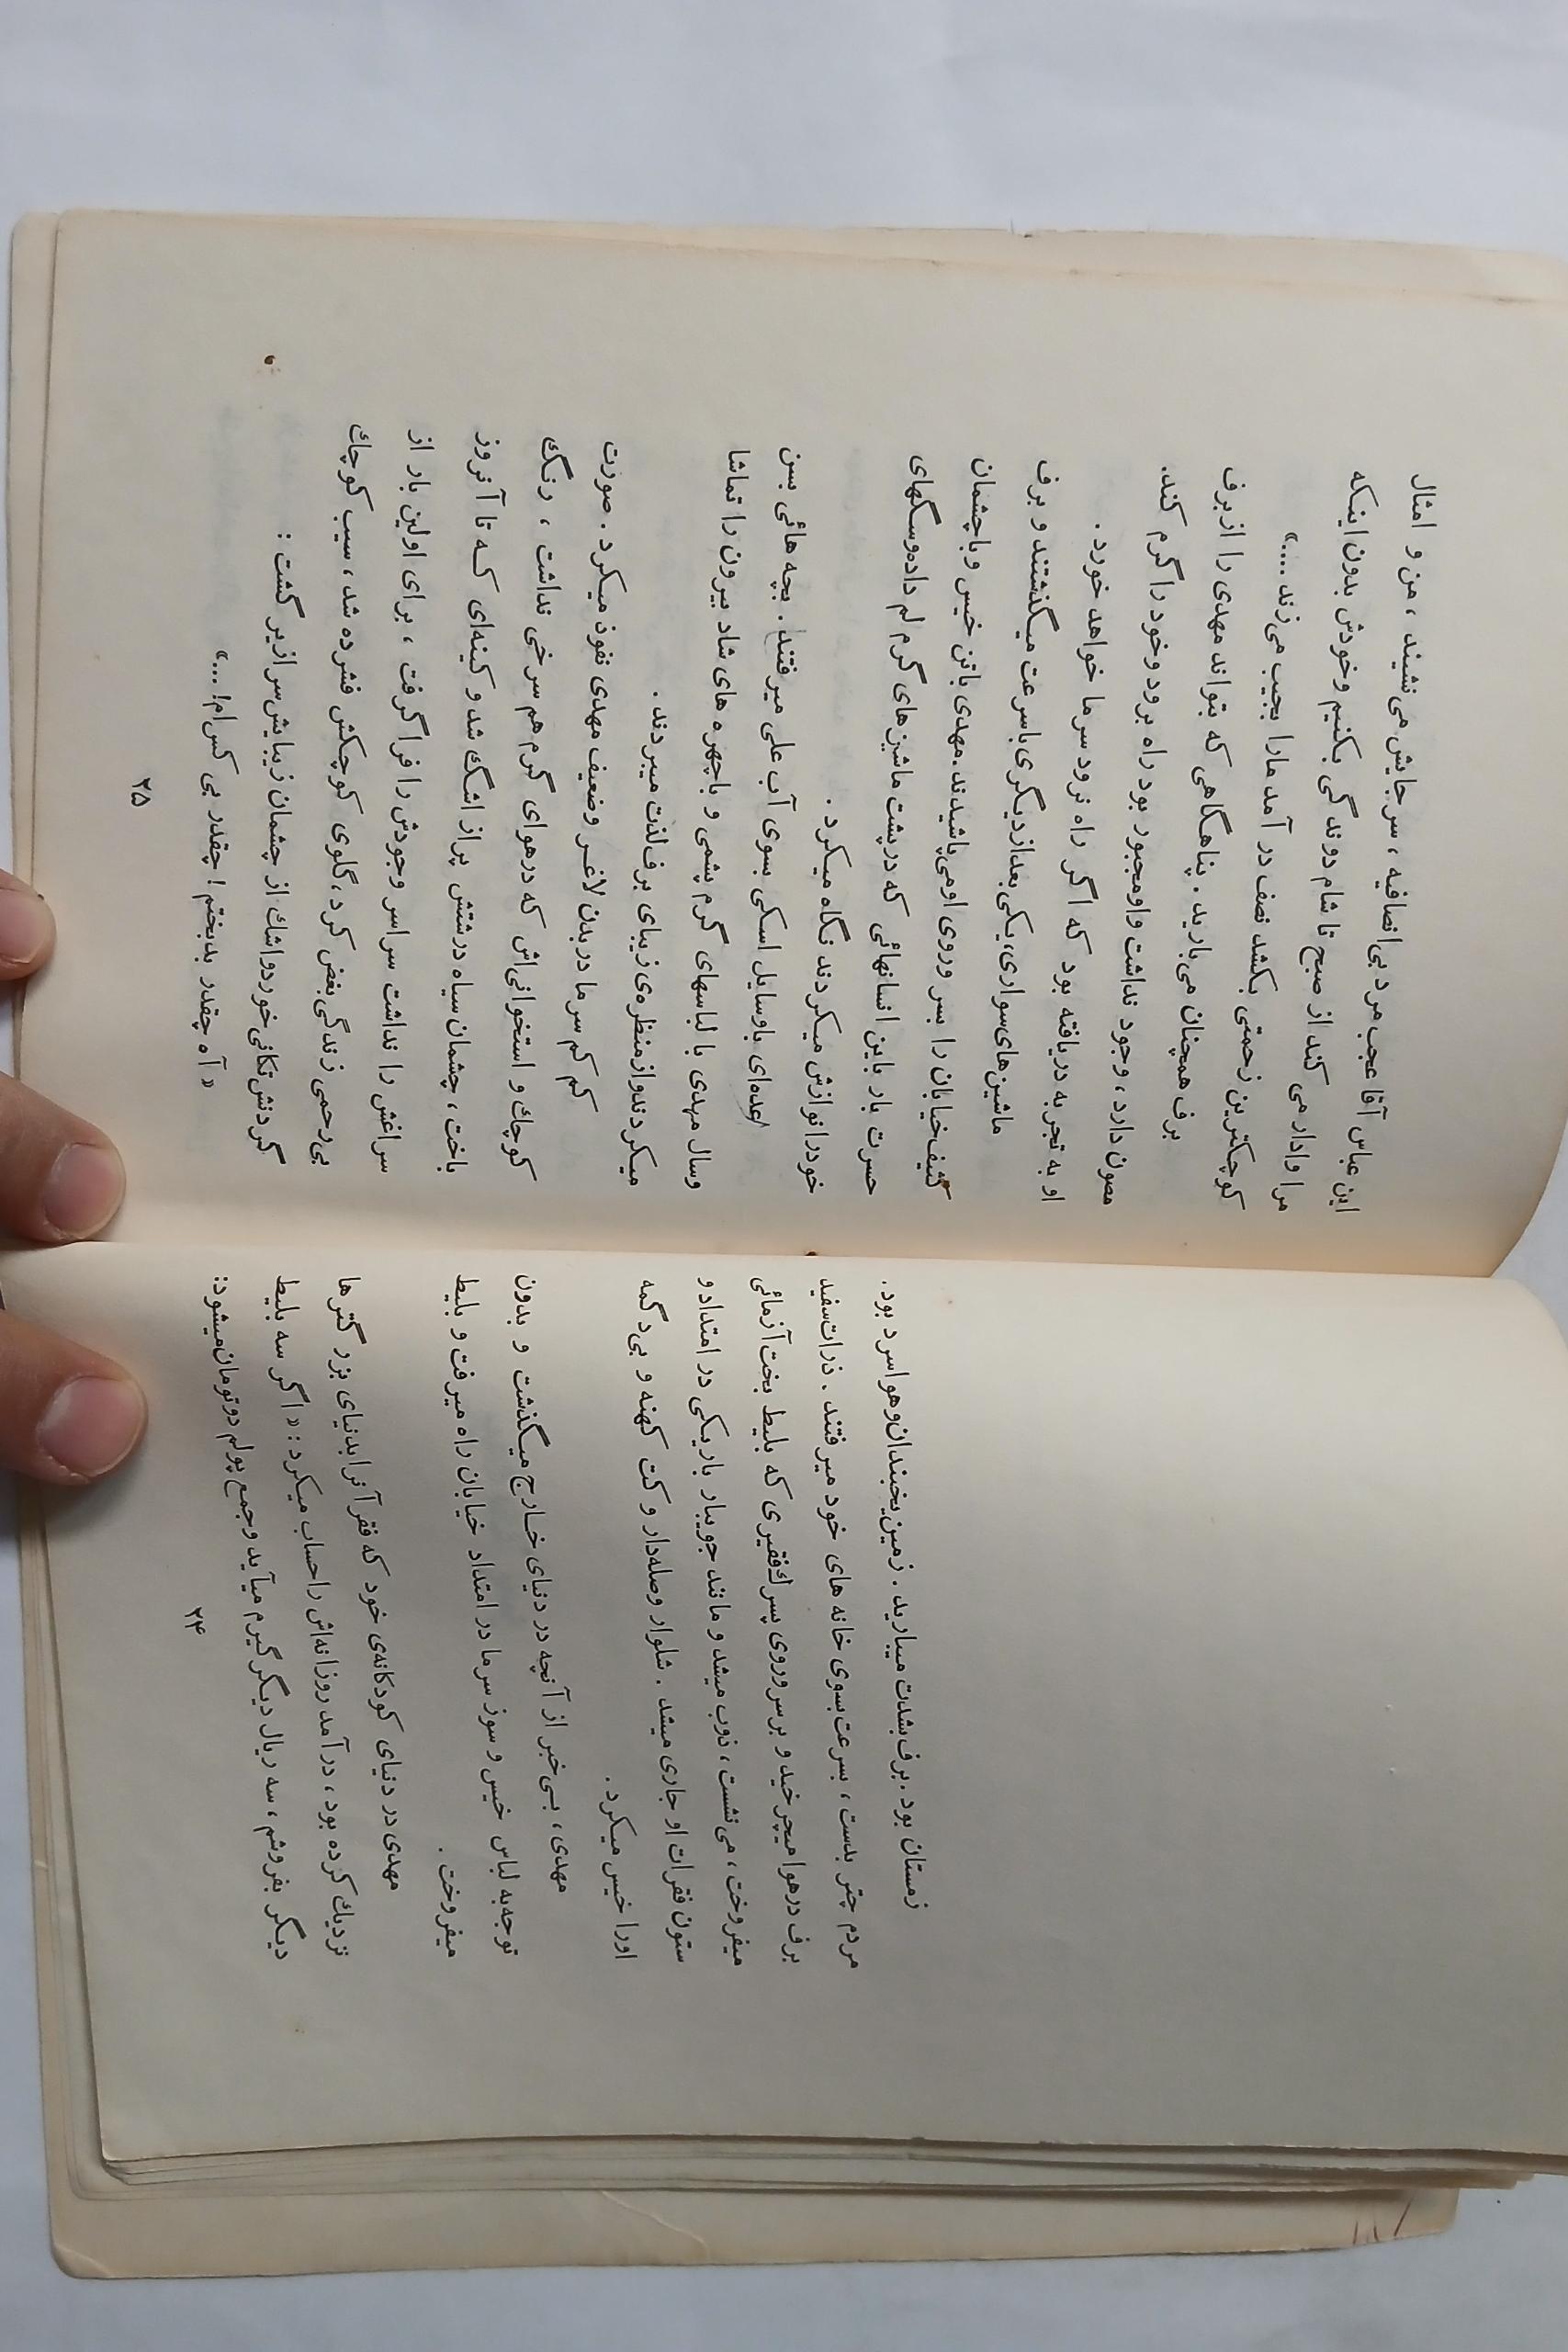 زمستان بود. برف بشدت میبارید. زمین یخبندان و هوا سرد بود.
مردم چتر بدست، بسرعت بسوی خانه های خود میرفتند. ذرات سفید
برف در هوا میچرخید و بر سر و روی پسرك فقیری که بلیط بخت آزمائی
میفروخت، می نشست، ذوب میشد و مانند جویبار باریکی در امتداد و
ستون فقرات او جاری میشد. شلوار وصله دار و کت کهنه و بی دگمه
اورا خیس میکرد.
مهدی، بی خبر از آنچه در دنیای خارج میگذشت و بدون
توجه به لباس خیس و سوز سرما در امتداد خیابان راه میرفت و بلیط
میفروخت.
مهدی در دنیای کودکانه‌ی خود که فقر آنرا بدنیای بزرگترها
نزدیك کرده بود، درآمد روزانه‌اش را حساب میکرد: « اگر سه بلیط
دیگر بفروشم، سه ریال دیگر گیرم میآید و جمع پولم دو تومان میشود:
۲۴
این عباس آقا عجب مرد بی انصافیه، سرجایش می نشیند، من و امثال
مرا وادار می کند از صبح تا شام دوندگی بکنیم و خودش بدون اینکه
کوچکترین زحمتی بکشد نصف درآمد مارا بجیب می زند....»
برف همچنان می بارید. پناهگاهی که بتواند مهدی را از برف
مصون دارد، وجود نداشت و او مجبور بود راه برود و خود را گرم کند.
او به تجربه دریافته بود که اگر راه نرود سرما خواهد خورد.
ماشین های سواری، یکی بعد از دیگری با سرعت میگذشتند و برف
کثیف خیابان را بسر و روی او می پاشیدند. مهدی با تن خیس و با چشمان
حسرت بار باین انسانهائی که در پشت ماشین های گرم لم داده و سگهای
خود را نوازش میکردند نگاه میکرد.
عده‌ای با وسایل اسکی بسوی آب علی میرفتند. بچه هائی بسن
و سال مهدی با لباسهای گرم پشمی و با چهره های شاد بیرون را تماشا
میکردند و از منظره‌ی زیبای برف لذت میبردند.
کم کم سرما در بدن لاغر و ضعیف مهدی نفوذ میکرد. صورت
کوچك و استخوانی اش که در هوای گرم هم سرخی نداشت، رنگ
باخت، چشمان سیاه درشتش پر از اشگ شد و کینه‌ای که تا آنروز
سراغش را نداشت سراسر وجودش را فرا گرفت، برای اولین بار از
بی رحمی زندگی بغض کرد، گلوی کوچکش فشرده شد، سیب کوچك
گردنش تکانی خورد و اشك از چشمان زیبایش سرازیر گشت:
« آه چقدر بدبختم! چقدر بی کس‌ام!...»
۲۵